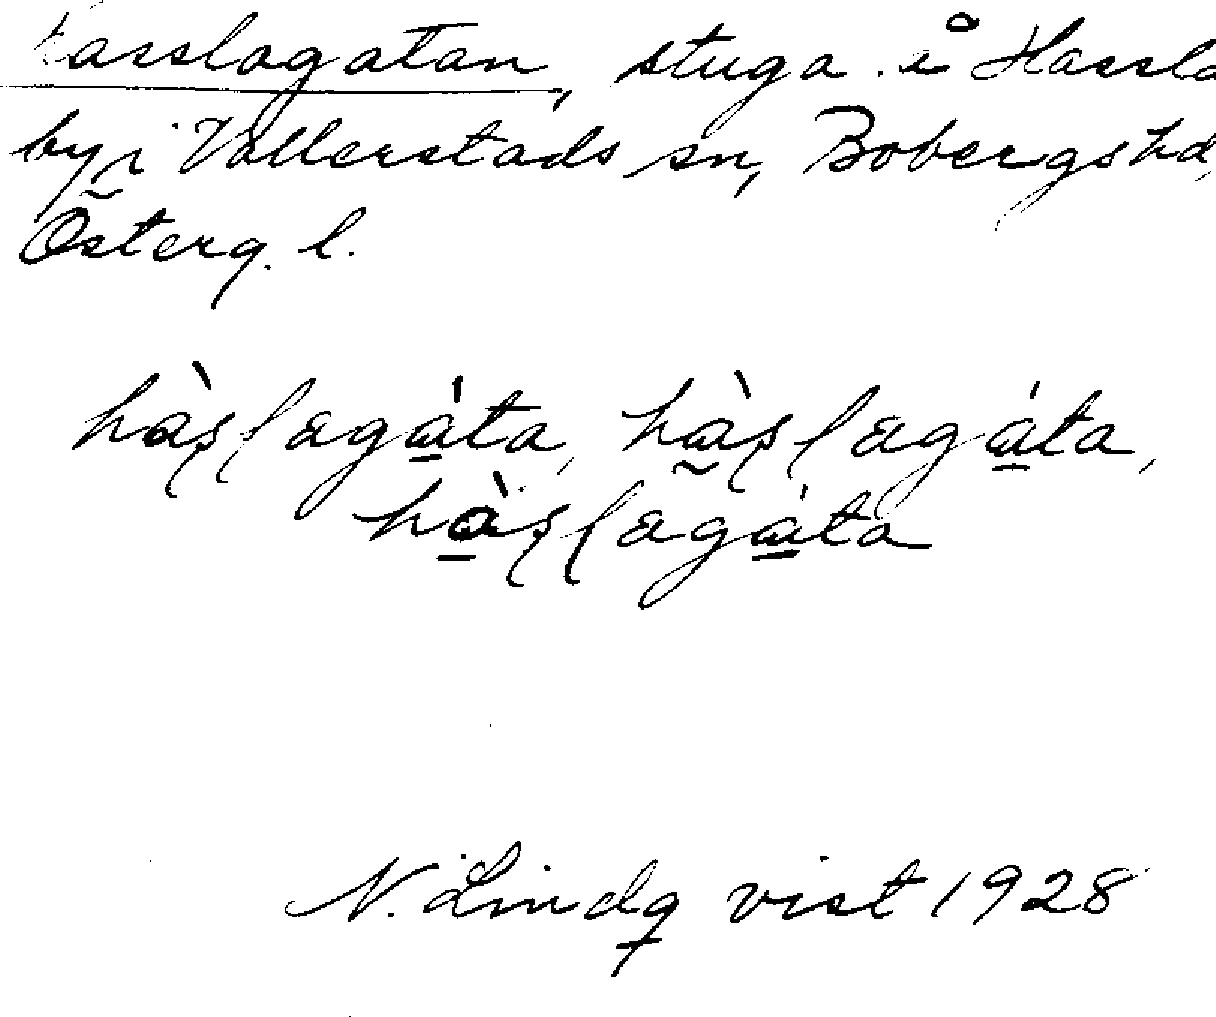 Hasslagatan, stuga å Hassla
by i Vallerstads sn, Bobergs hd,
Österg. l.
hàslagáta, hàslagáta,
hàslagáta
N. Lindq vist 1928